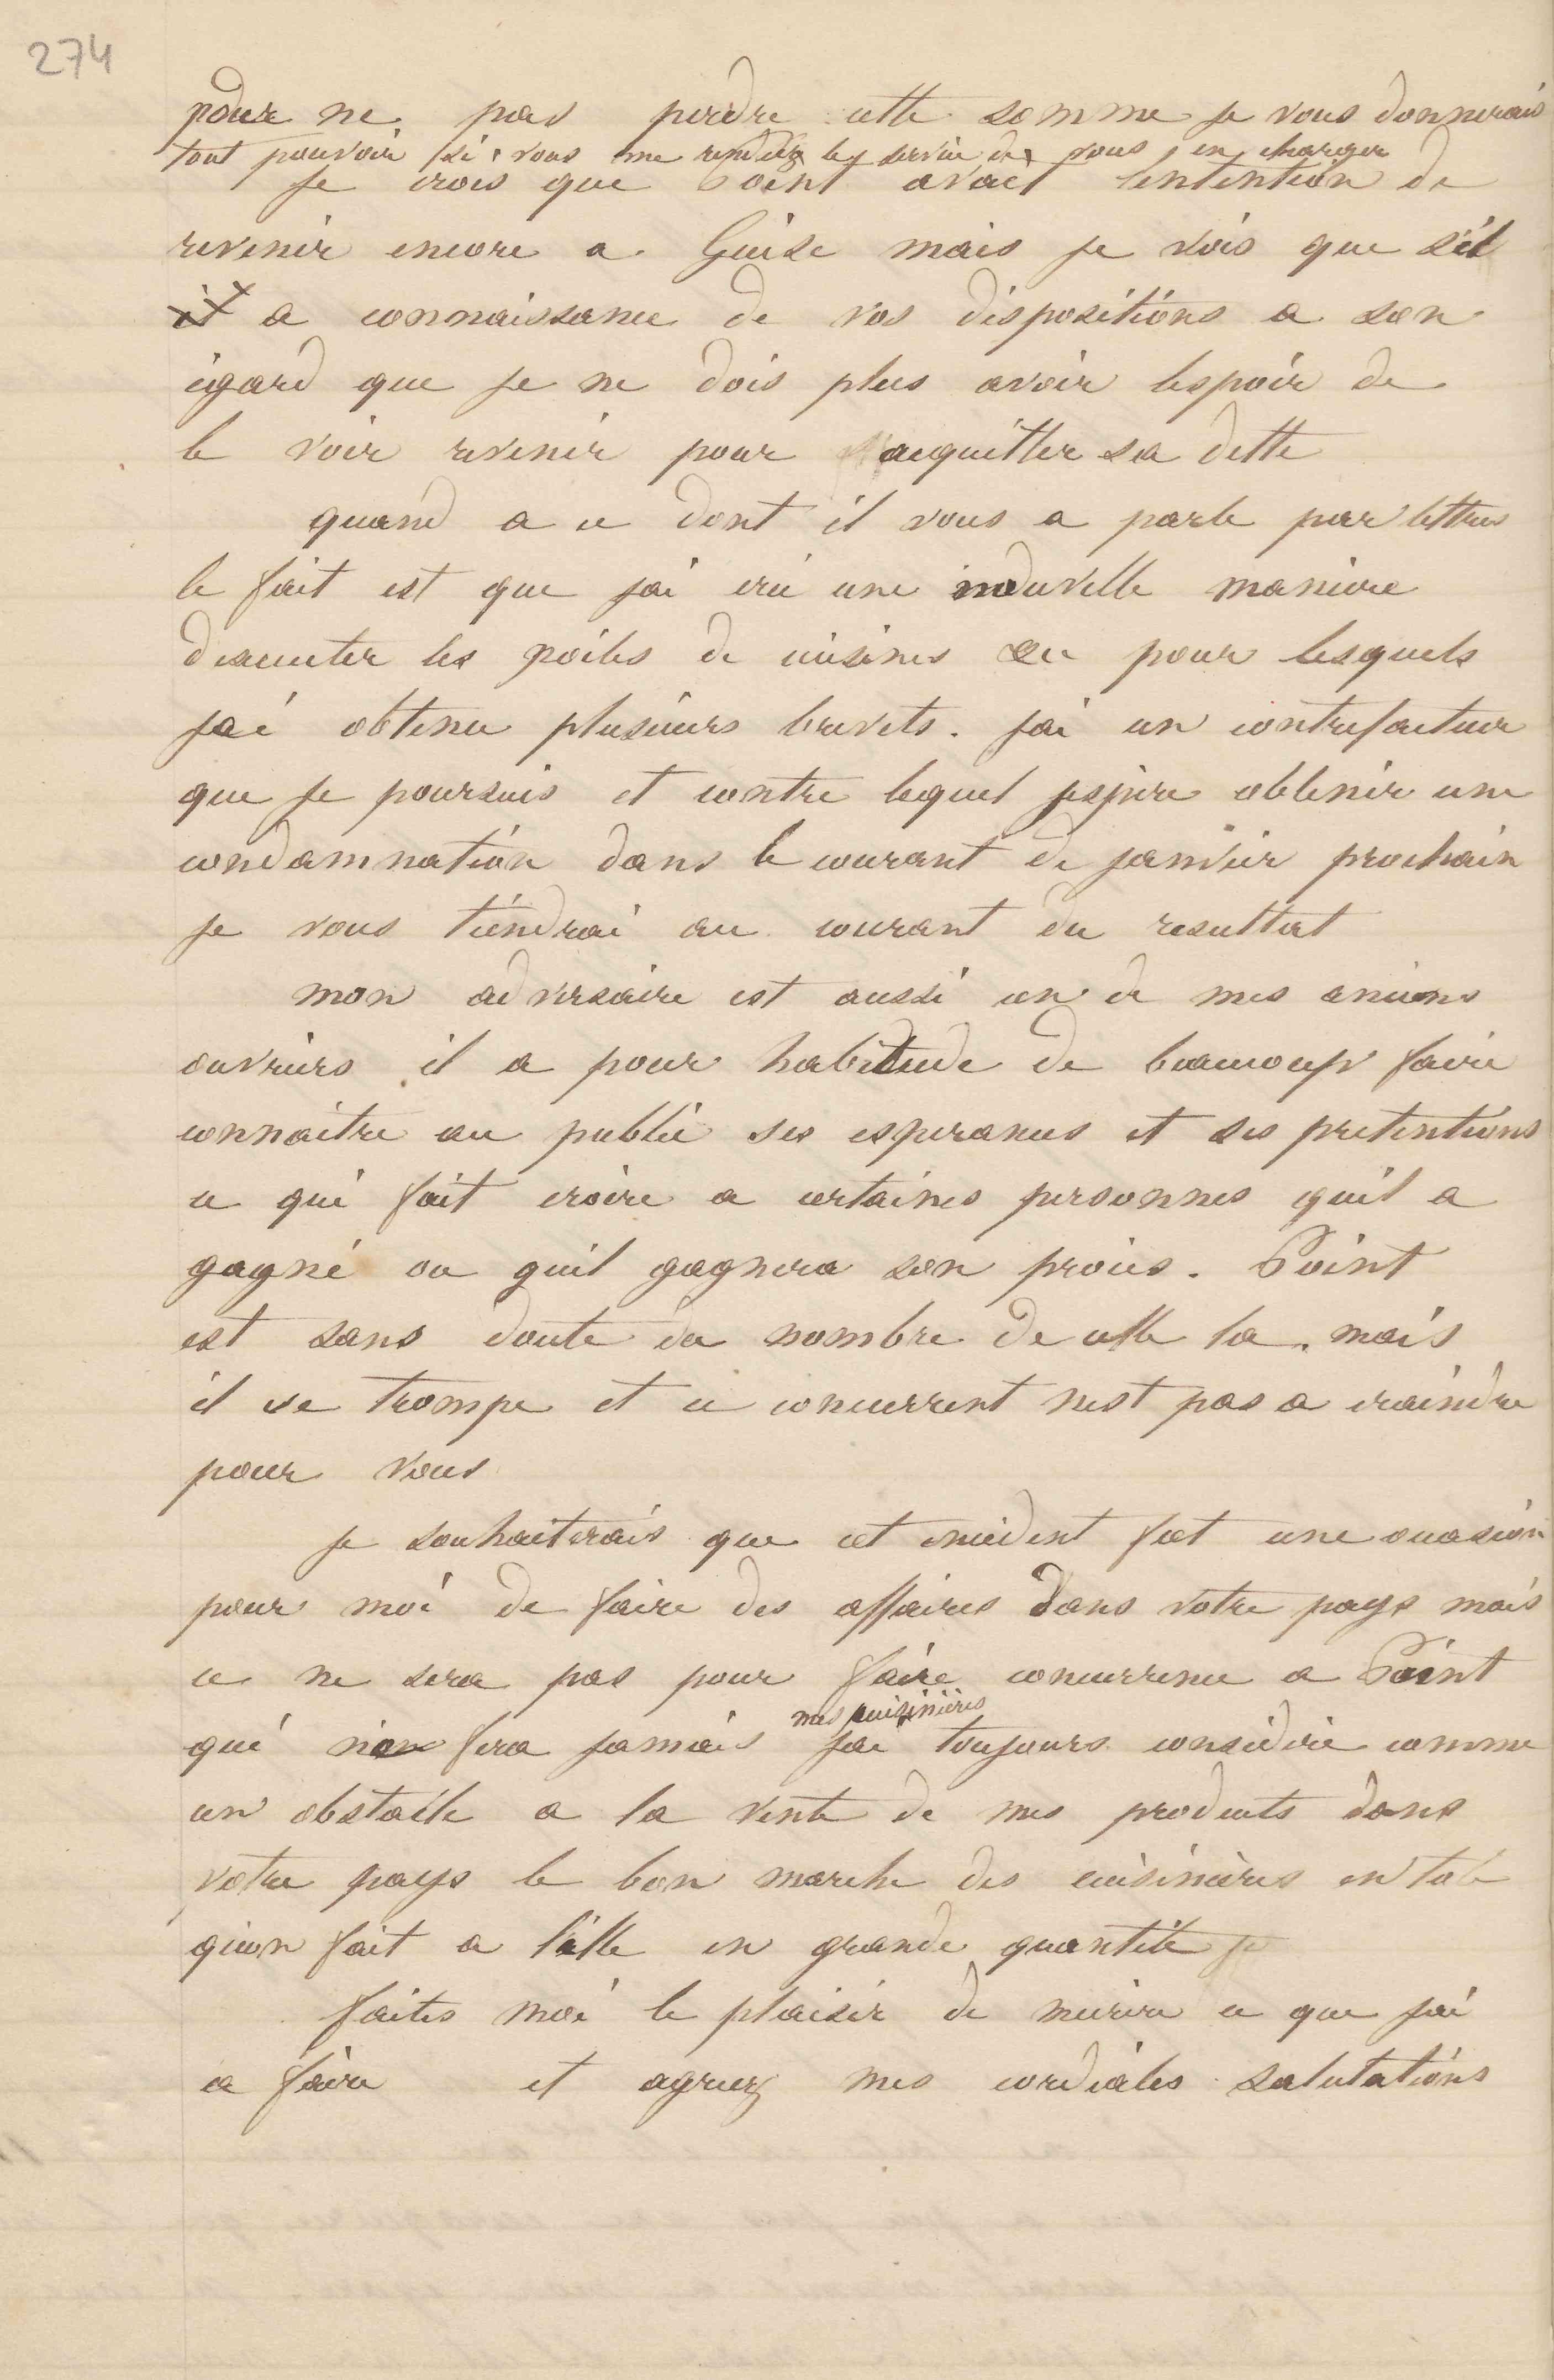 274
pour ne pas perdre cette somme je vous donnerais
tout pouvoir si vous me rendiez le service de vous en charger
Je crois que Point avait lintention de
revenir encore a Guise mais je vois que s'il
il a connaissance de vos dispositions a son
égard que je ne dois plus avoir lespoir de
le voir revenir pour acquitter sa dette
quand a ce dont il vous a parlé par lettres
le fait est que jai créé une nouvelle maniere
dexecuter les poëles de cuisines &c pour lesquels
jai obtenu plusieurs brevets. jai un contrefacteur
que je poursuis et contre lequel jespère obtenir une
condamnation dans le courant de janvier prochain
je vous tiendrai au courant du resultat
mon adversaire est aussi un de mes anciens
ouvriers il a pour habitude de beaucoup faire
connaitre au public ses esperances et ses pretentions
ce qui fait croire a certaines personnes quil a
gagné ou quil gagnera son procès. Point
est sans doute du nombre de celle la. mais
il se trompe et ce concurrent nest pas a craindre
pour vous
je souhaiterais que cet incident fut une occasion
pour moi de faire des affaires dans votre pays mais
ce ne sera pas pour faire concurrence a Point
mes cuisinières
qui n'en fera jamais jai toujours considéré comme
un obstacle a la vente de mes produits dans
votre pays le bon marché des cuisinières en tole
qu'on fait a Lille en grande quantité je
faites moi le plaisir de mecrire ce que jai
a faire et agréez mes cordiales salutations